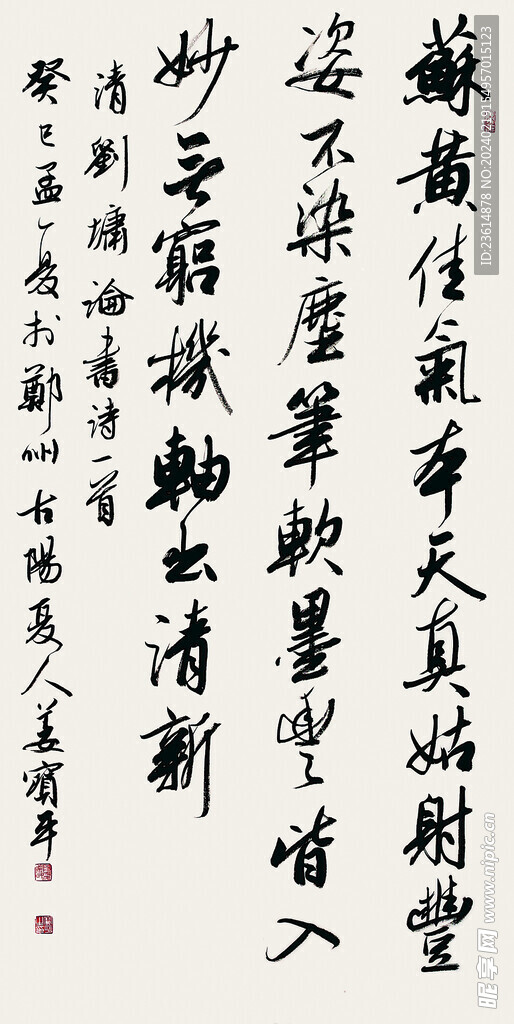 蘇黄佳氣本天真姑射豐
姿不染塵筆軟墨豐皆入
妙无窮機軸出清新
清劉墉論書诗一首
癸巳孟夏扵鄭州古陽夏人姜寶平
昵享网 www.nipic.cn